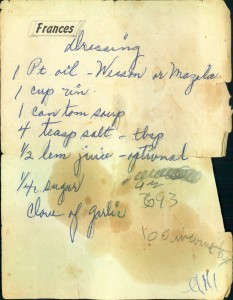 Frances
Dressing
1 Pt oil - Wesson or Mazola
1 cup vin.
1 can tom soup
4 teasp salt - tbsp
1/2 lem juice - optional
1/4 c sugar
Clove of garlic
693